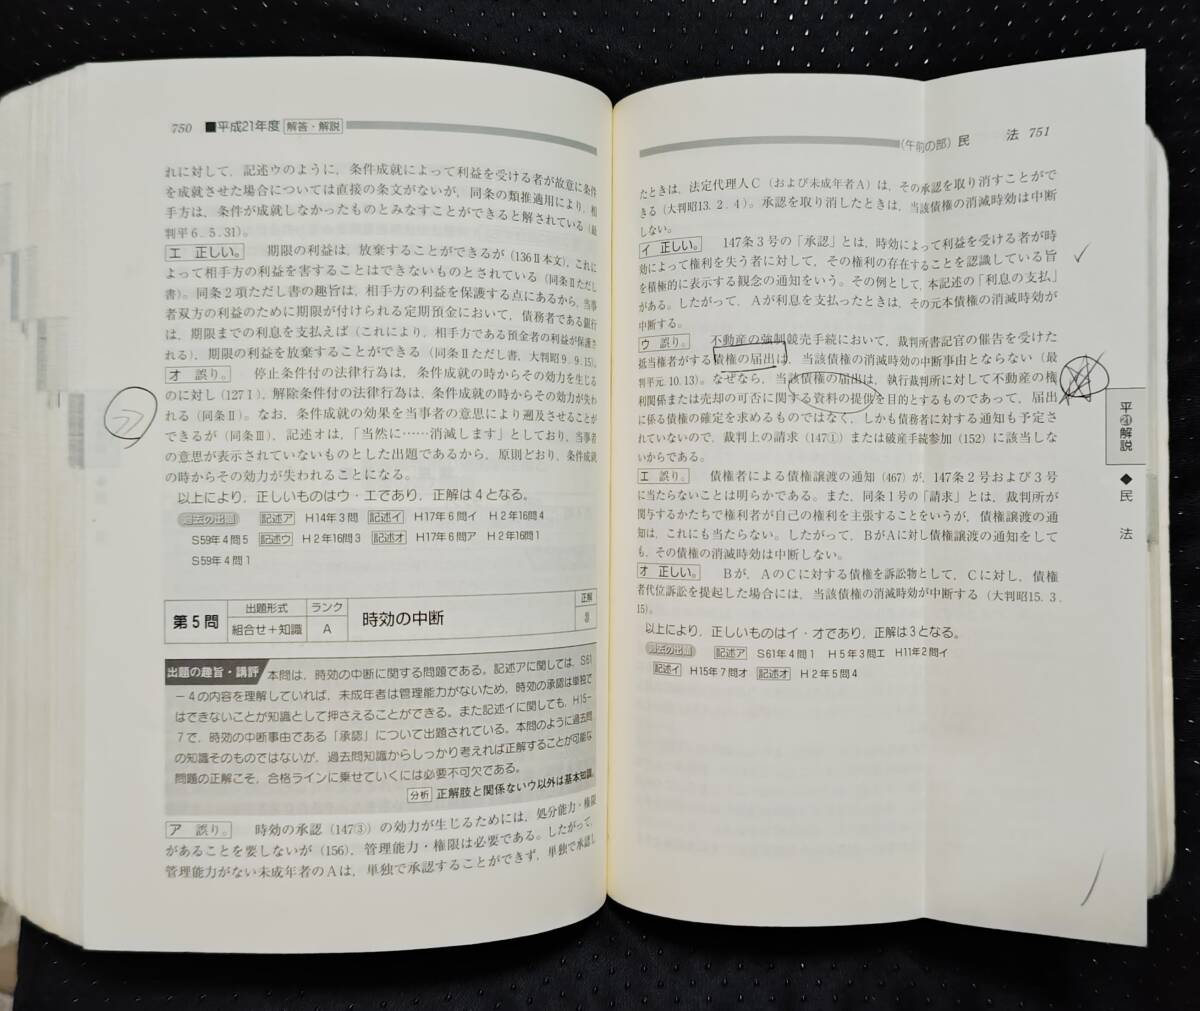 750 ■平成21年度 解答・解説
れに対して、記述ウのように、条件成就によって利益を受ける者が故意に条件
を成就させた場合については直接の条文がないが、同条の類推適用により、相
手方は、条件が成就しなかったものとみなすことができると解されている（最
判平6.5.31）。
エ 正しい。 期限の利益は、放棄することができるが（136Ⅱ本文）、これに
よって相手方の利益を害することはできないものとされている（同条Ⅱただし
書）。同条2項ただし書の趣旨は、相手方の利益を保護する点にあるから、当事
者双方の利益のために期限が付けられる定期預金において、債務者である銀行
は、期限までの利息を支払えば（これにより、相手方である預金者の利益が保護さ
れる）、期限の利益を放棄することができる（同条Ⅱただし書、大判昭9.9.15）。
オ 誤り。 停止条件付の法律行為は、条件成就の時からその効力を生じる
のに対し（127Ⅰ）、解除条件付の法律行為は、条件成就の時からその効力が失わ
れる（同条Ⅱ）。なお、条件成就の効果を当事者の意思により遡及させることが
できるが（同条Ⅲ）、記述オは、「当然に……消滅します」としており、当事者
の意思が表示されていないものとした出題であるから、原則どおり、条件成就
の時からその効力が失われることになる。
以上により、正しいものはウ・エであり、正解は4となる。
過去の出題 記述ア H14年3問 記述イ H17年6問イ H2年16問4
S59年4問5 記述ウ H2年16問3 記述オ H17年6問ア H2年16問1
S59年4問1
第5問 出題形式 組合せ＋知識 ランク A 時効の中断 正解 3
出題の趣旨・講評 本問は、時効の中断に関する問題である。記述アに関しては、S61
－4の内容を理解していれば、未成年者は管理能力がないため、時効の承認は単独で
はできないことが知識として押さえることができる。また記述イに関しても、H15－
7で、時効の中断事由である「承認」について出題されている。本問のように過去問
の知識そのものではないが、過去問知識からしっかり考えれば正解することが可能な
問題の正解こそ、合格ラインに乗せていくには必要不可欠である。
分析 正解肢と関係ないウ以外は基本知識。
ア 誤り。 時効の承認（147③）の効力が生じるためには、処分能力・権限
があることを要しないが（156）、管理能力・権限は必要である。したがって、
管理能力がない未成年者のAは、単独で承認することができず、単独で承認し
（午前の部）民 法 751
たときは、法定代理人C（および未成年者A）は、その承認を取り消すことがで
きる（大判昭13.2.4）。承認を取り消したときは、当該債権の消滅時効は中断
しない。
イ 正しい。 147条3号の「承認」とは、時効によって利益を受ける者が時
効によって権利を失う者に対して、その権利の存在することを認識している旨
を積極的に表示する観念の通知をいう。その例として、本記述の「利息の支払」
がある。したがって、Aが利息を支払ったときは、その元本債権の消滅時効が
中断する。
ウ 誤り。 不動産の強制競売手続において、裁判所書記官の催告を受けた
抵当権者がする債権の届出は、当該債権の消滅時効の中断事由とならない（最
判平元.10.13）。なぜなら、当該債権の届出は、執行裁判所に対して不動産の権
利関係または売却の可否に関する資料の提供を目的とするものであって、届出
に係る債権の確定を求めるものではなく、しかも債務者に対する通知も予定さ
れていないので、裁判上の請求（147①）または破産手続参加（152）に該当しな
いからである。
エ 誤り。 債権者による債権譲渡の通知（467）が、147条2号および3号
に当たらないことは明らかである。また、同条1号の「請求」とは、裁判所が
関与するかたちで権利者が自己の権利を主張することをいうが、債権譲渡の通
知は、これにも当たらない。したがって、BがAに対し債権譲渡の通知をして
も、その債権の消滅時効は中断しない。
オ 正しい。 Bが、AのCに対する債権を訴訟物として、Cに対し、債権
者代位訴訟を提起した場合には、当該債権の消滅時効が中断する（大判昭15.3.
15）。
以上により、正しいものはイ・オであり、正解は3となる。
過去の出題 記述ア S61年4問1 H5年3問エ H11年2問イ
記述イ H15年7問オ 記述オ H2年5問4
平㉑解説
◆民 法